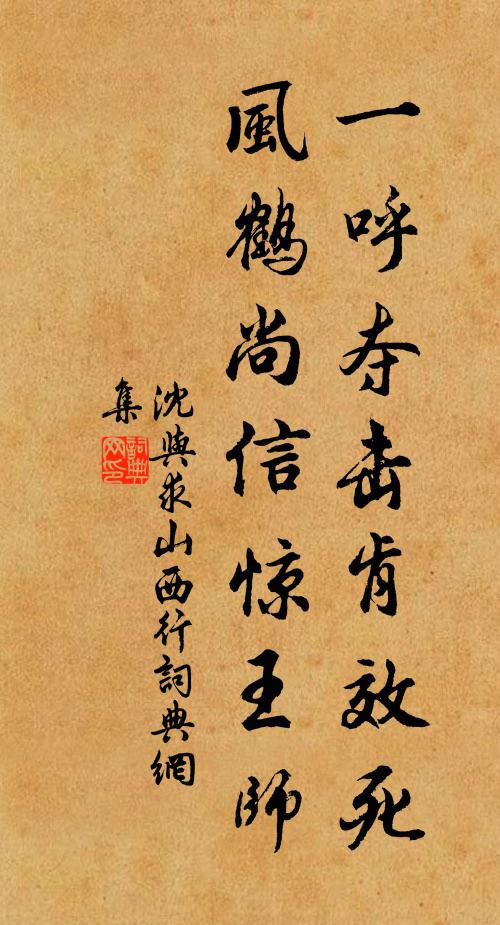 一呼夺击肯效死
風鶴尚信惊王師
沈與求山西行詞典網
集
詞典網印